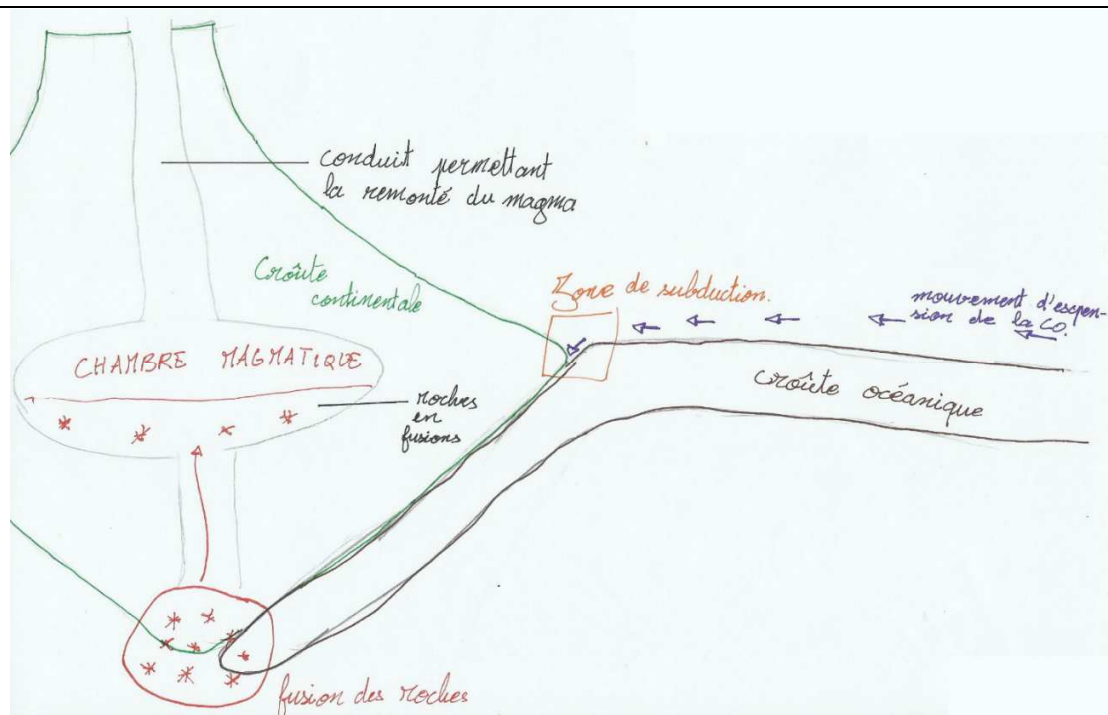 conduit permettant
la remonté du magma
Croûte
continentale
Zone de subduction.
mouvement d'espen-
sion de la CO.
CHAMBRE MAGMATIQUE
roches
en
fusions
croûte océanique
fusion des roches